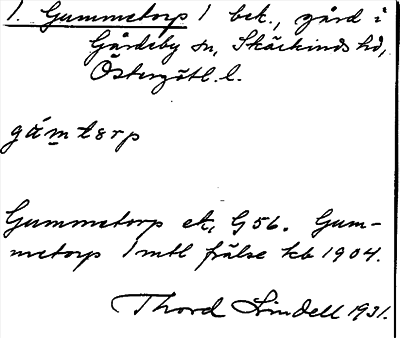 1. Gummetorp / bek., gård i
Gårdeby sn, Skärkinds hd,
Östergötl. l.
gám̱tǝrp
Gummetorp ek, G56. Gum-
metorp 1 mtl frälse kb 1904.
Thord Lindell 1931.